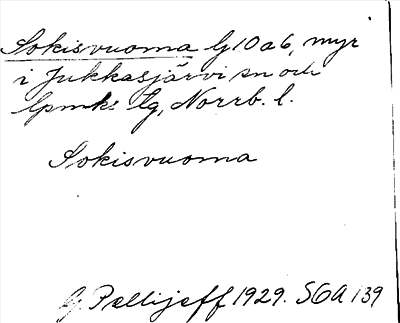 Sokisvuoma lj 10 a6, myr
i Jukkasjärvi sn och
lpmks tg, Norrb. l.
Sokisvuoma
G. Pellijeff 1929. SOA 139